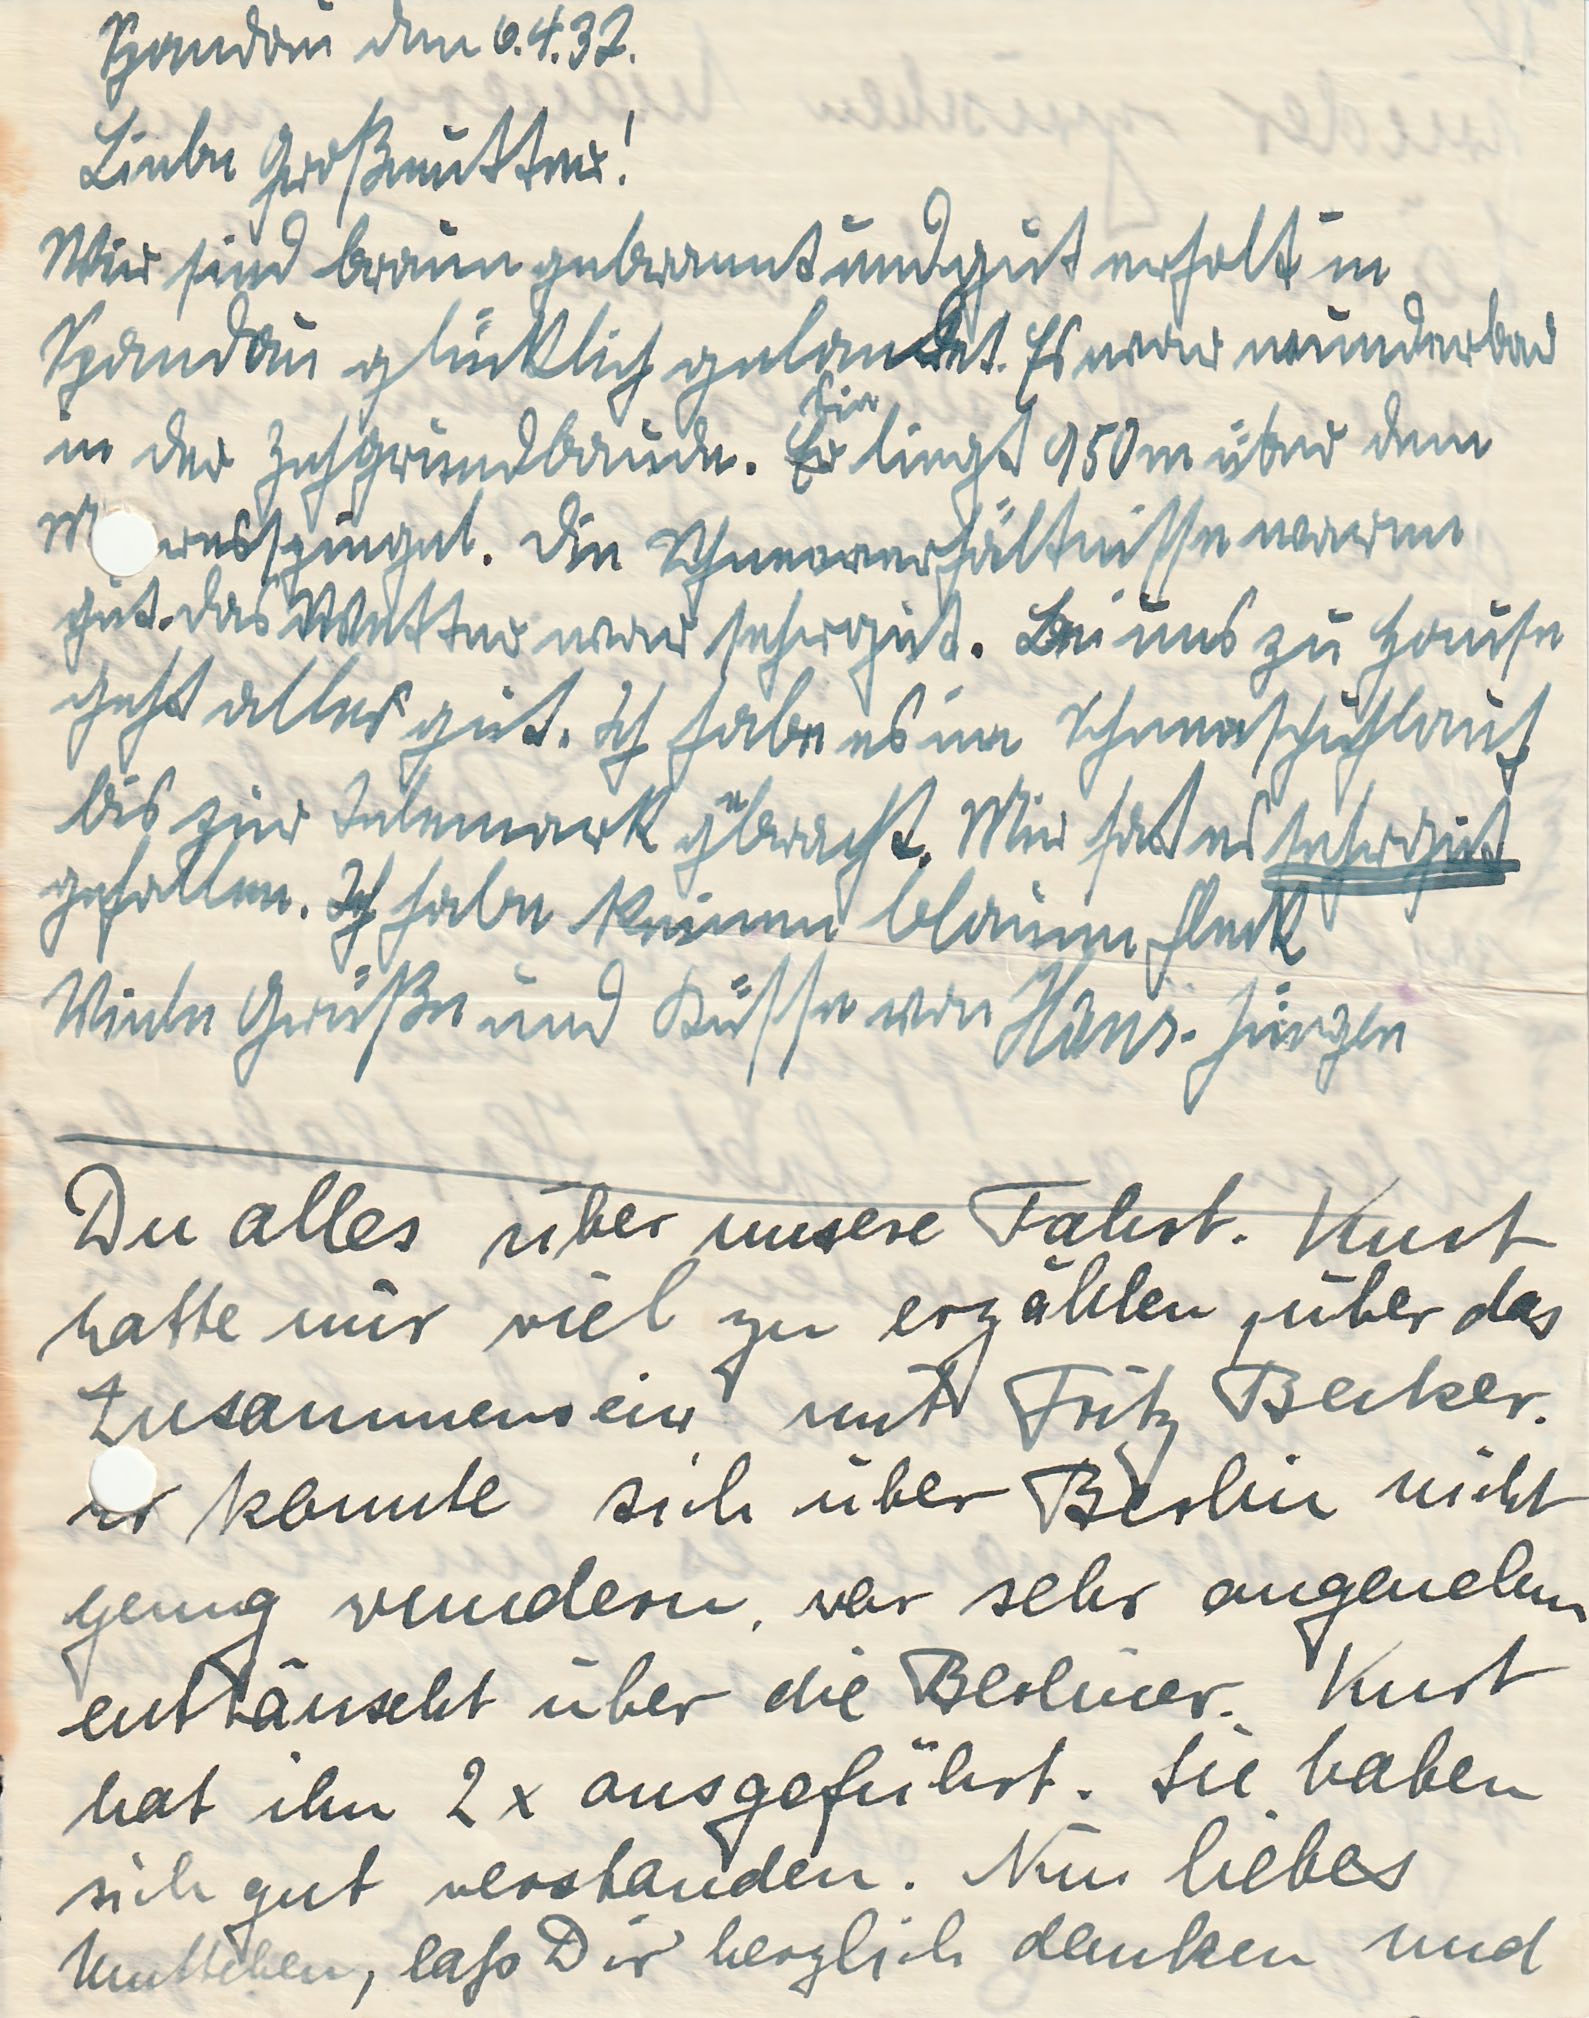 Spandau den 6.4.37.
Liebe Großmutter!
Wir sind braun gebrannt und gut erholt in
Spandau glücklich gelandet. Es war wunderbar
in der Zehgrundbaude. Sie liegt 950 m über dem
Meeresspiegel. Die Schneeverhältnisse waren
gut. das Wetter war sehr gut. Bei uns zu Hause
geht alles gut. Ich habe es im Schneeschuhlauf
bis zur Telemark gebracht. Mir hat es sehr gut
gefallen. Ich habe keinen blauen Fleck
Viele Grüße und Küsse von Hans-Jürgen
Du alles über unsere Fahrt. Kurt
hatte mir viel zu erzählen, über das
Zusammensein mit Fritz Becker.
er konnte sich über Berlin nicht
genug wundern, war sehr angenehm
enttäuscht über die Berliner. Kurt
hat ihn 2 x ausgeführt. Sie haben
sich gut verstanden. Nun liebes
Muttchen, laß Dir herzlich danken und